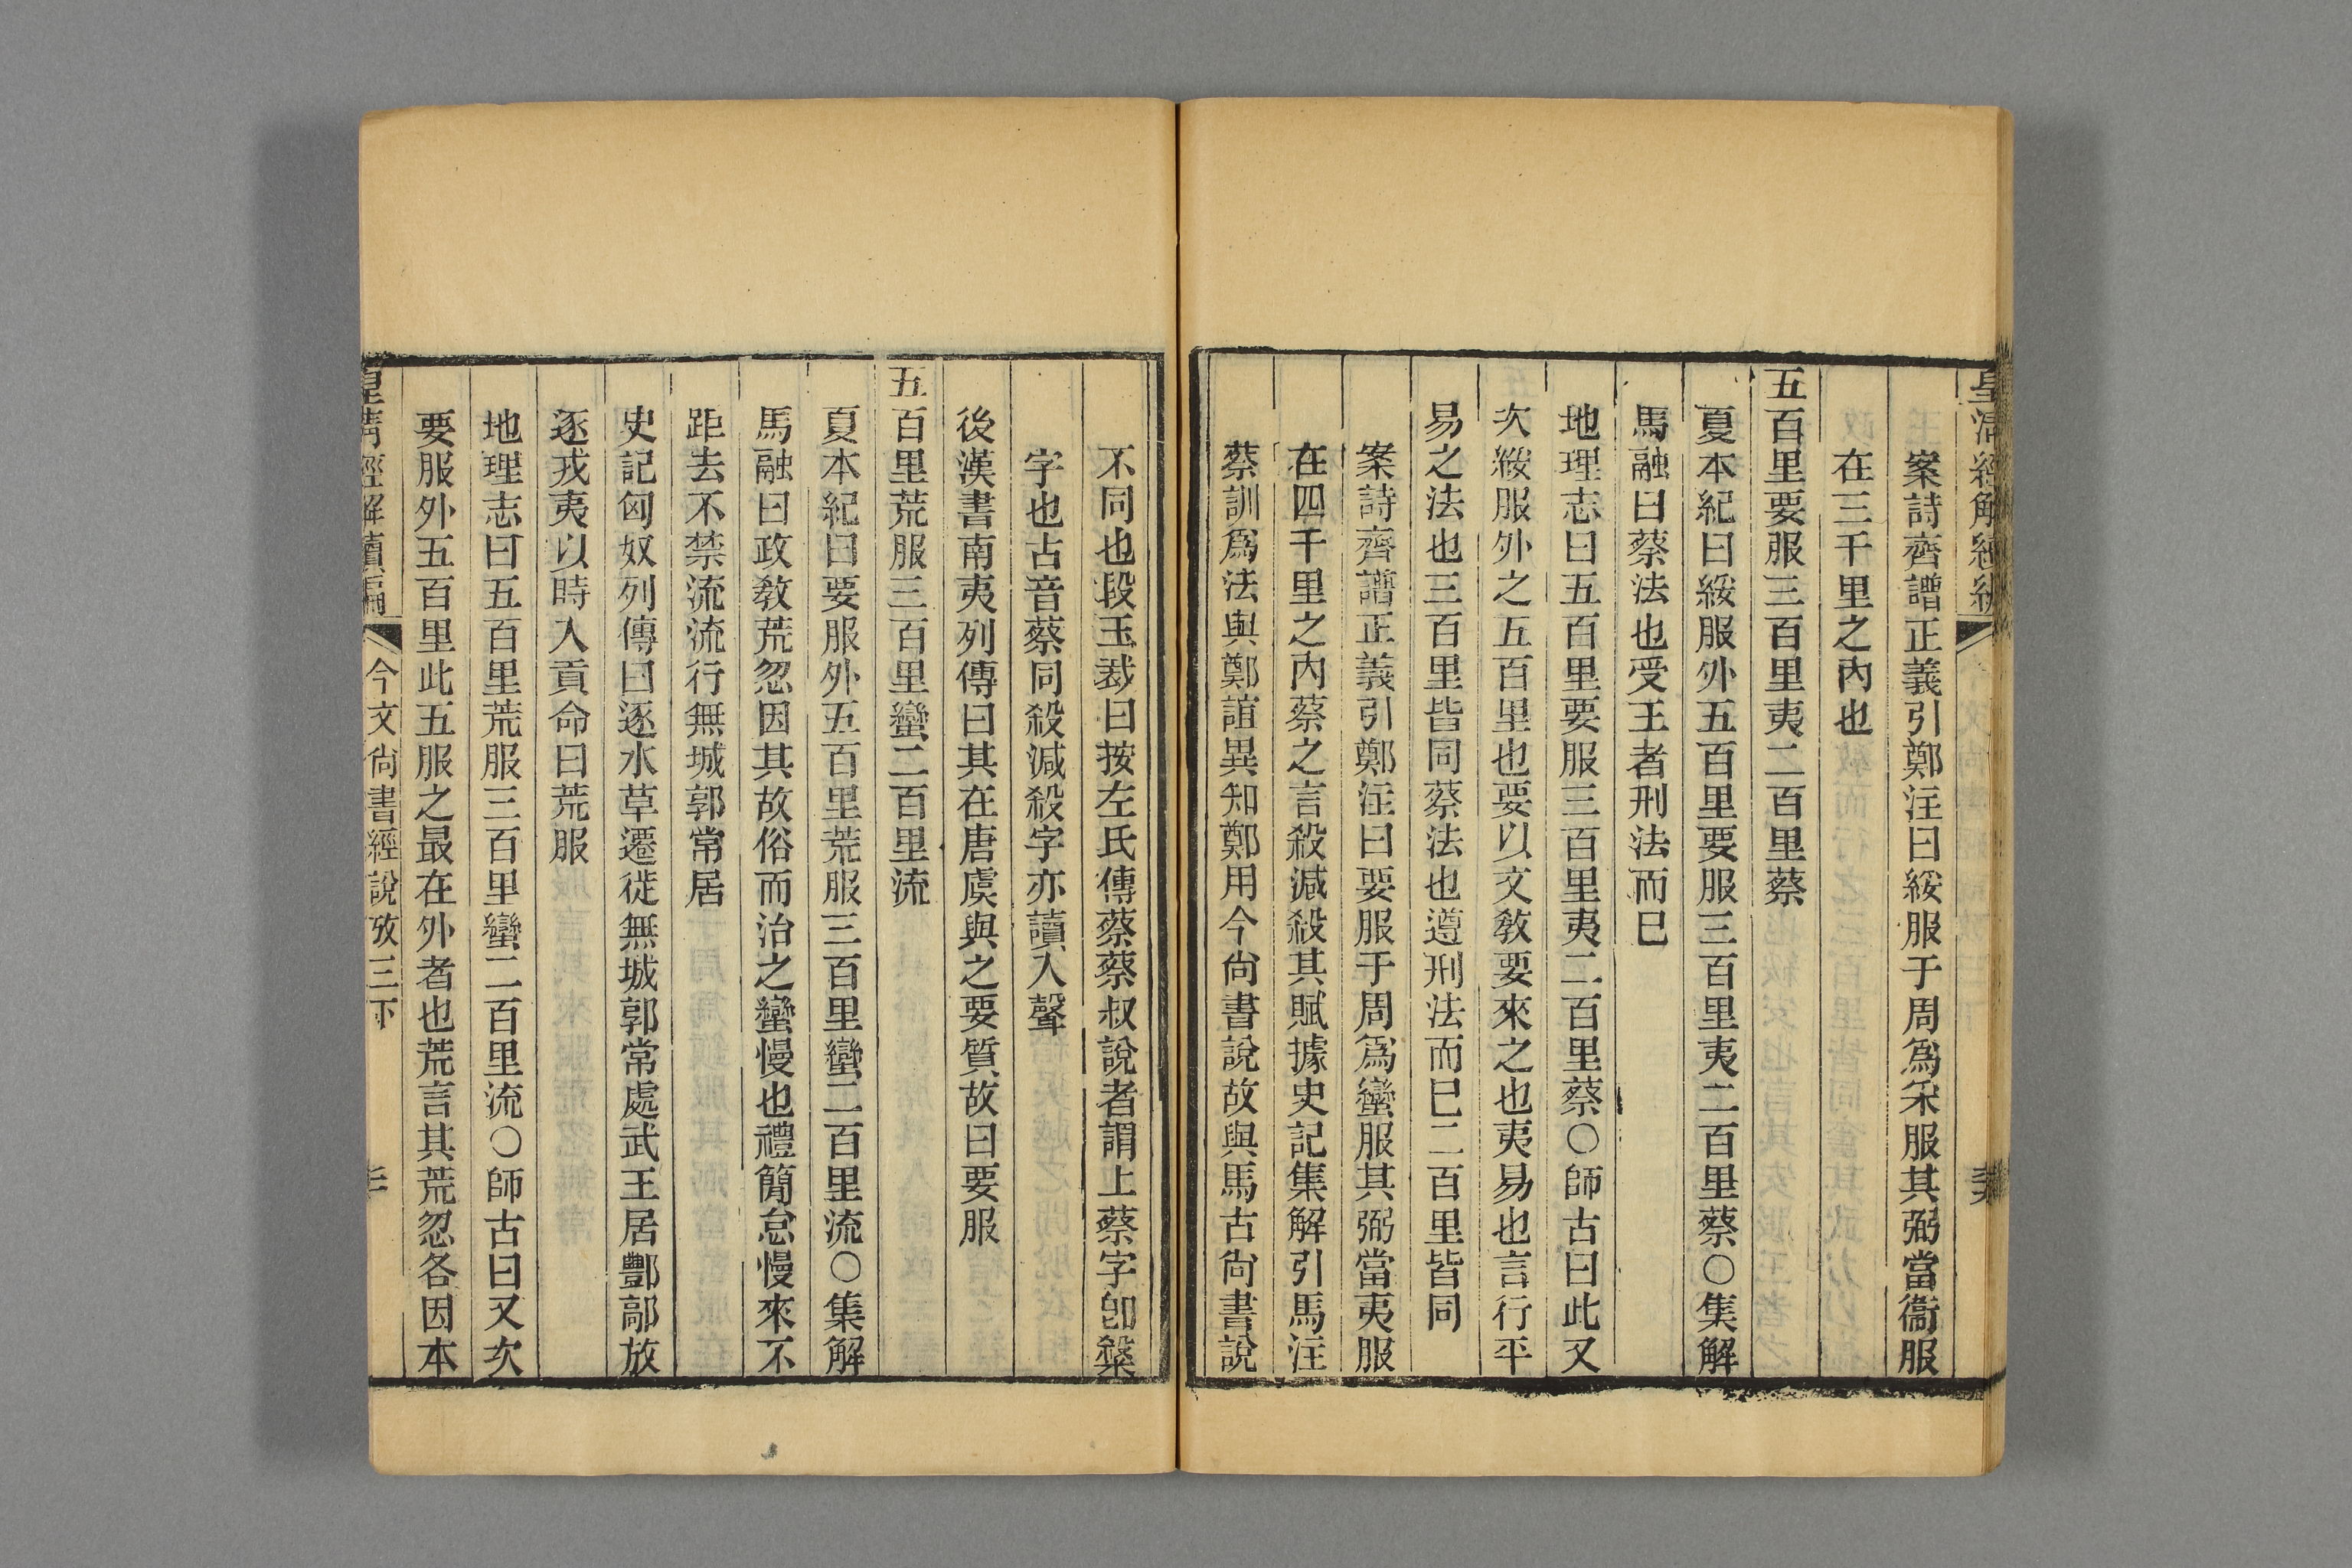 案詩齊譜正義引鄭注曰綏服于周爲采服其弼當衞服
在三千里之內也
五百里要服三百里夷二百里蔡
夏本紀曰綏服外五百里要服三百里夷二百里蔡○集解
馬融曰蔡法也受王者刑法而已
地理志曰五百里要服三百里夷二百里蔡○師古曰此又
次綏服外之五百里也要以文敎要來之也夷易也言行平
易之法也三百里皆同蔡法也遵刑法而已二百里皆同
案詩齊譜正義引鄭注曰要服于周爲蠻服其弼當夷服
在四千里之內蔡之言殺減殺其賦據史記集解引馬注
蔡訓爲法與鄭誼異知鄭用今尙書說故與馬古尙書說
不同也段玉裁曰按左氏傳蔡蔡叔說者謂上蔡字卽
字也古音蔡同殺減殺字亦讀入聲
後漢書南夷列傳曰其在唐虞與之要質故曰要服
五百里荒服三百里蠻二百里流
夏本紀曰要服外五百里荒服三百里蠻二百里流○集解
馬融曰政敎荒忽因其故俗而治之蠻慢也禮簡怠慢來不
距去不禁流流行無城郭常居
史記匈奴列傳曰逐水草遷徙無城郭常處武王居酆鄗放
逐戎夷以時入貢命曰荒服
地理志曰五百里荒服三百里蠻二百里流○師古曰又次
要服外五百里此五服之最在外者也荒言其荒忽各因本
皇淸經解續編 今文尙書經說攷三下